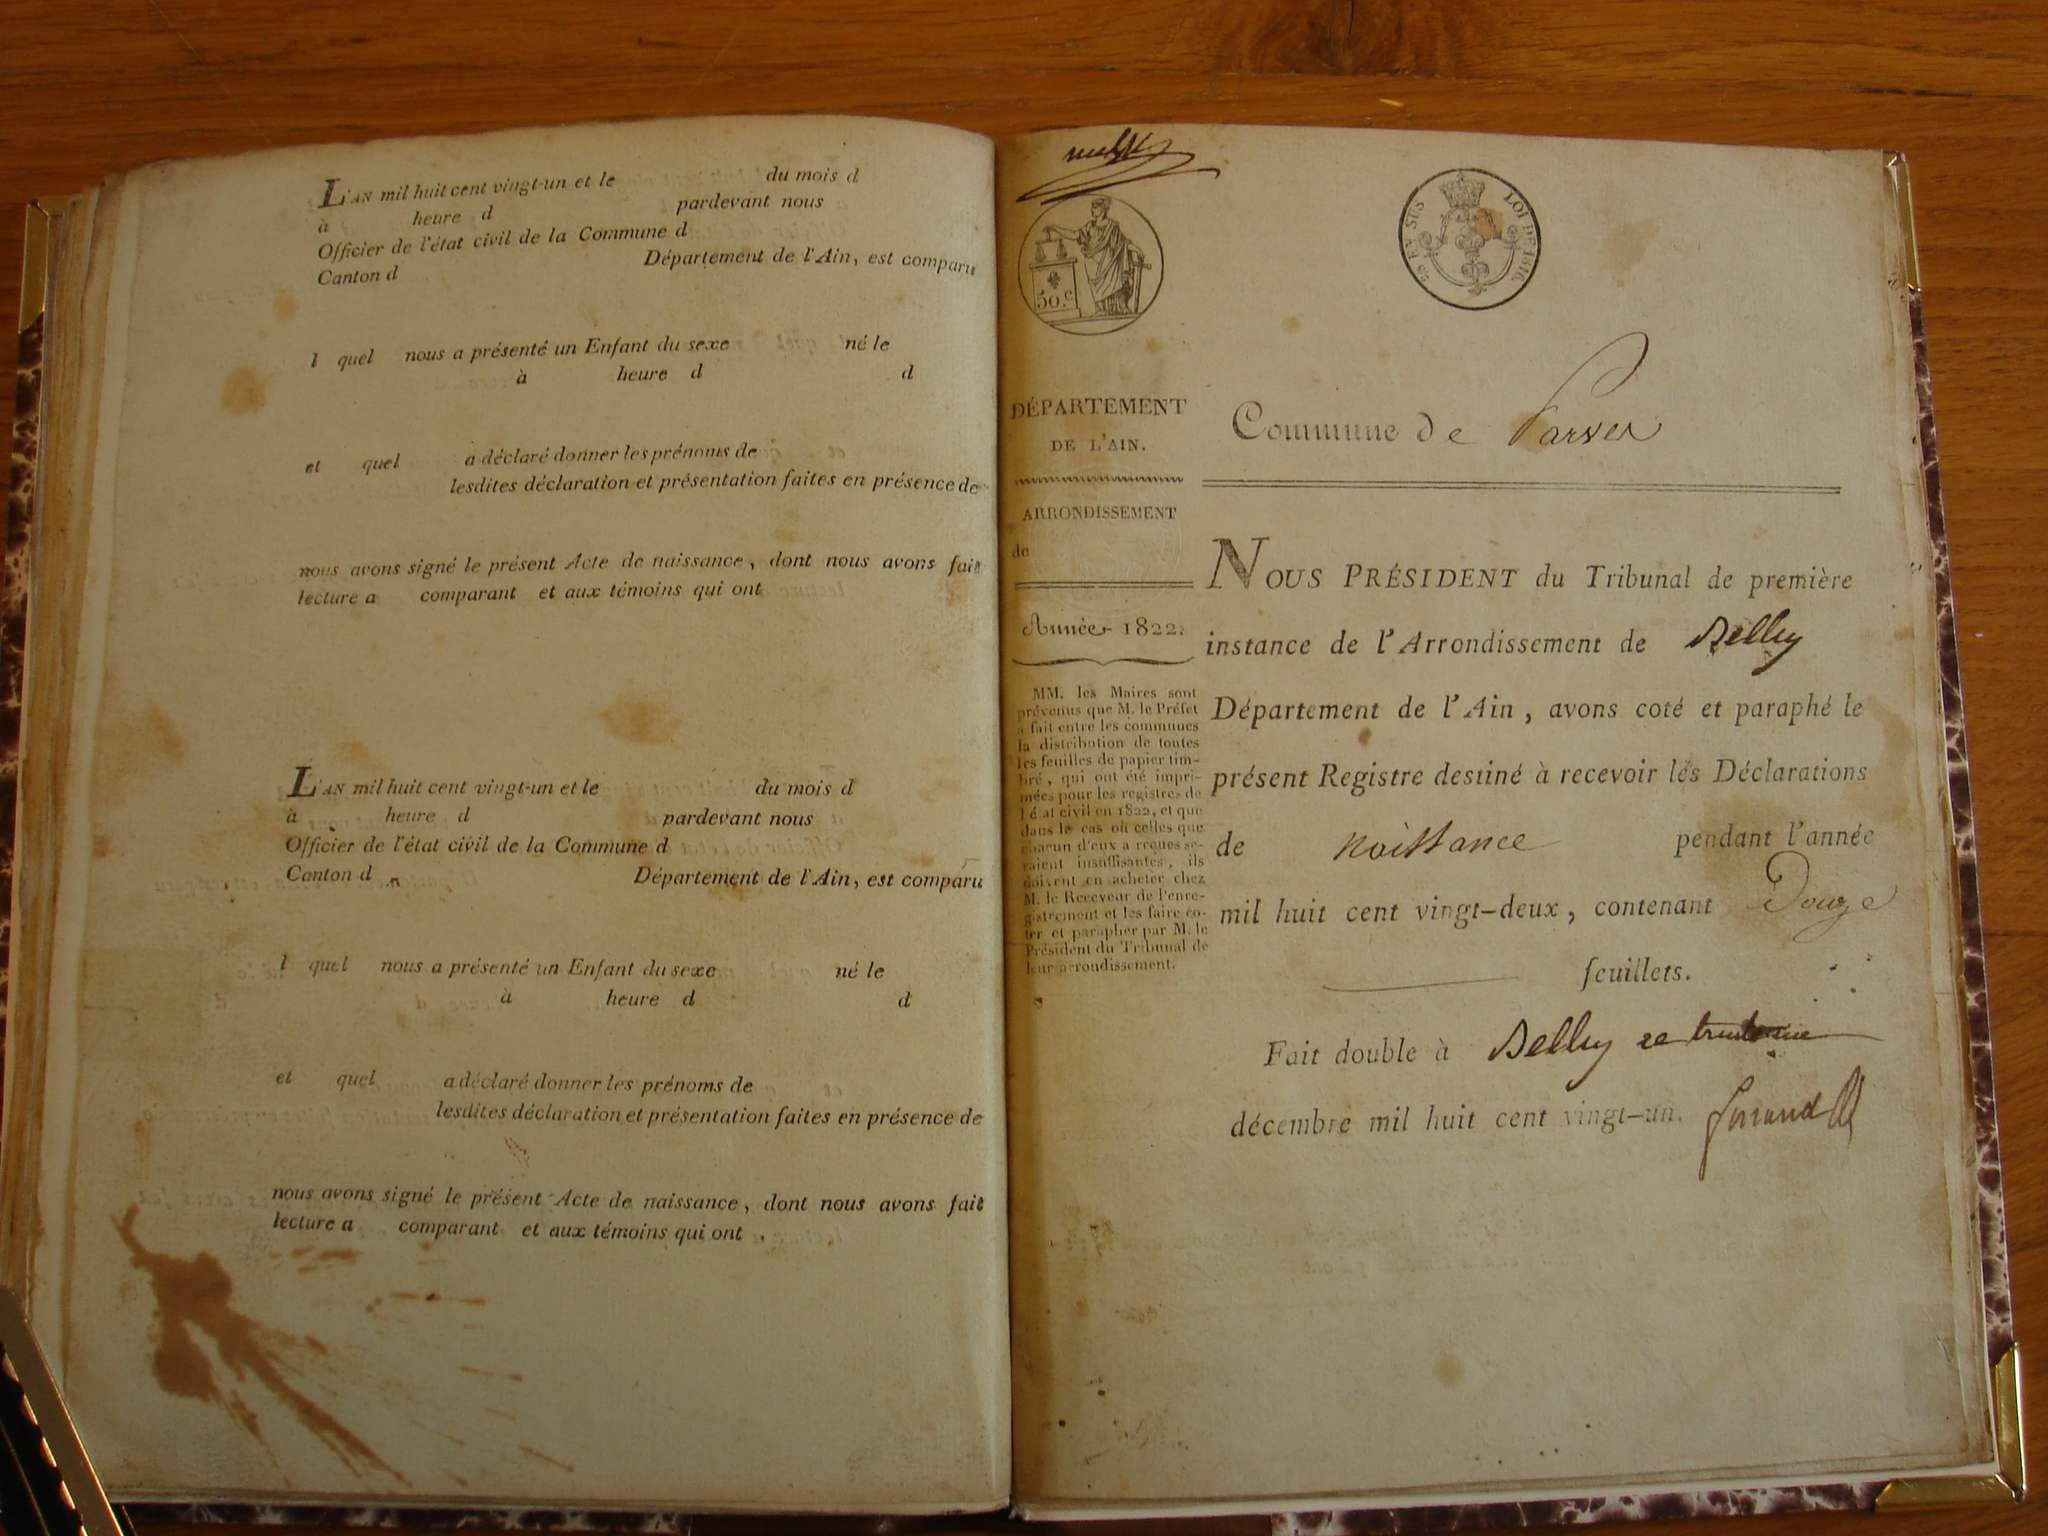 L'AN mil huit cent vingt-un et le du mois d
à heure d pardevant nous
Officier de l'état civil de la Commune d
Canton d Département de l'Ain, est comparu
l quel nous a présenté un Enfant du sexe né le
à heure d d
et quel a déclaré donner les prénoms de
lesdites déclaration et présentation faites en présence de
nous avons signé le présent Acte de naissance, dont nous avons fait
lecture a comparant et aux témoins qui ont
L'AN mil huit cent vingt-un et le du mois d
à heure d pardevant nous
Officier de l'état civil de la Commune d
Canton d Département de l'Ain, est comparu
l quel nous a présenté un Enfant du sexe né le
à heure d d
et quel a déclaré donner les prénoms de
lesdites déclaration et présentation faites en présence de
nous avons signé le présent Acte de naissance, dont nous avons fait
lecture a comparant et aux témoins qui ont
50 c
EN SUS LOI DE 1816.
DÉPARTEMENT
DE L'AIN.
ARRONDISSEMENT
de
Année 1822.
MM. les Maires sont
prévenus que M. le Préfet
a fait entre les communes
la distribution de toutes
les feuilles de papier tim-
bré, qui ont été impri-
mées pour les registres de
l'état civil en 1822, et que
dans le cas où celles que
chacun d'eux a reçues se-
raient insuffisantes, ils
doivent en acheter chez
M. le Receveur de l'enre-
gistrement et les faire co-
ter et parapher par M. le
Président du Tribunal de
leur arrondissement.
Commune de Parves
NOUS PRÉSIDENT du Tribunal de première
instance de l'Arrondissement de Belley
Département de l'Ain, avons coté et paraphé le
présent Registre destiné à recevoir les Déclarations
de naissance pendant l'année
mil huit cent vingt-deux, contenant Douze
feuillets.
Fait double à Belley le
décembre mil huit cent vingt-un.